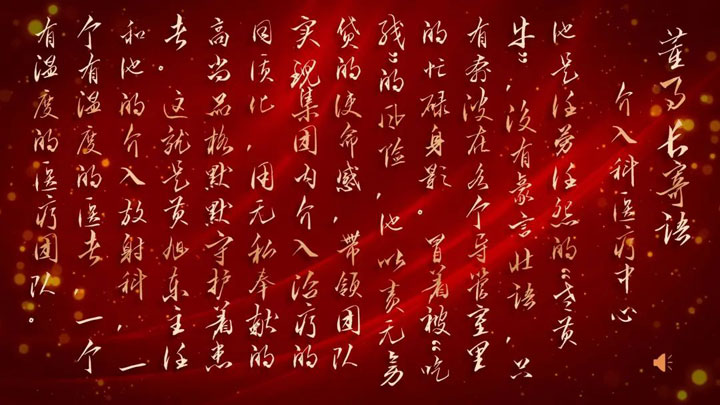 董事长寄语
介入科医疗中心
他是任劳任怨的“老黄
牛”,没有豪言壮语,只
有奔波在各个导管室里
的忙碌身影。冒着被“吃
线”的风险,他以责无旁
贷的使命感,带领团队
实现集团内介入治疗的
同质化,用无私奉献的
高尚品格默默守护着患
者。这就是黄旭东主任
和他的介入放射科,一
个有温度的医者,一个
有温度的医疗团队。